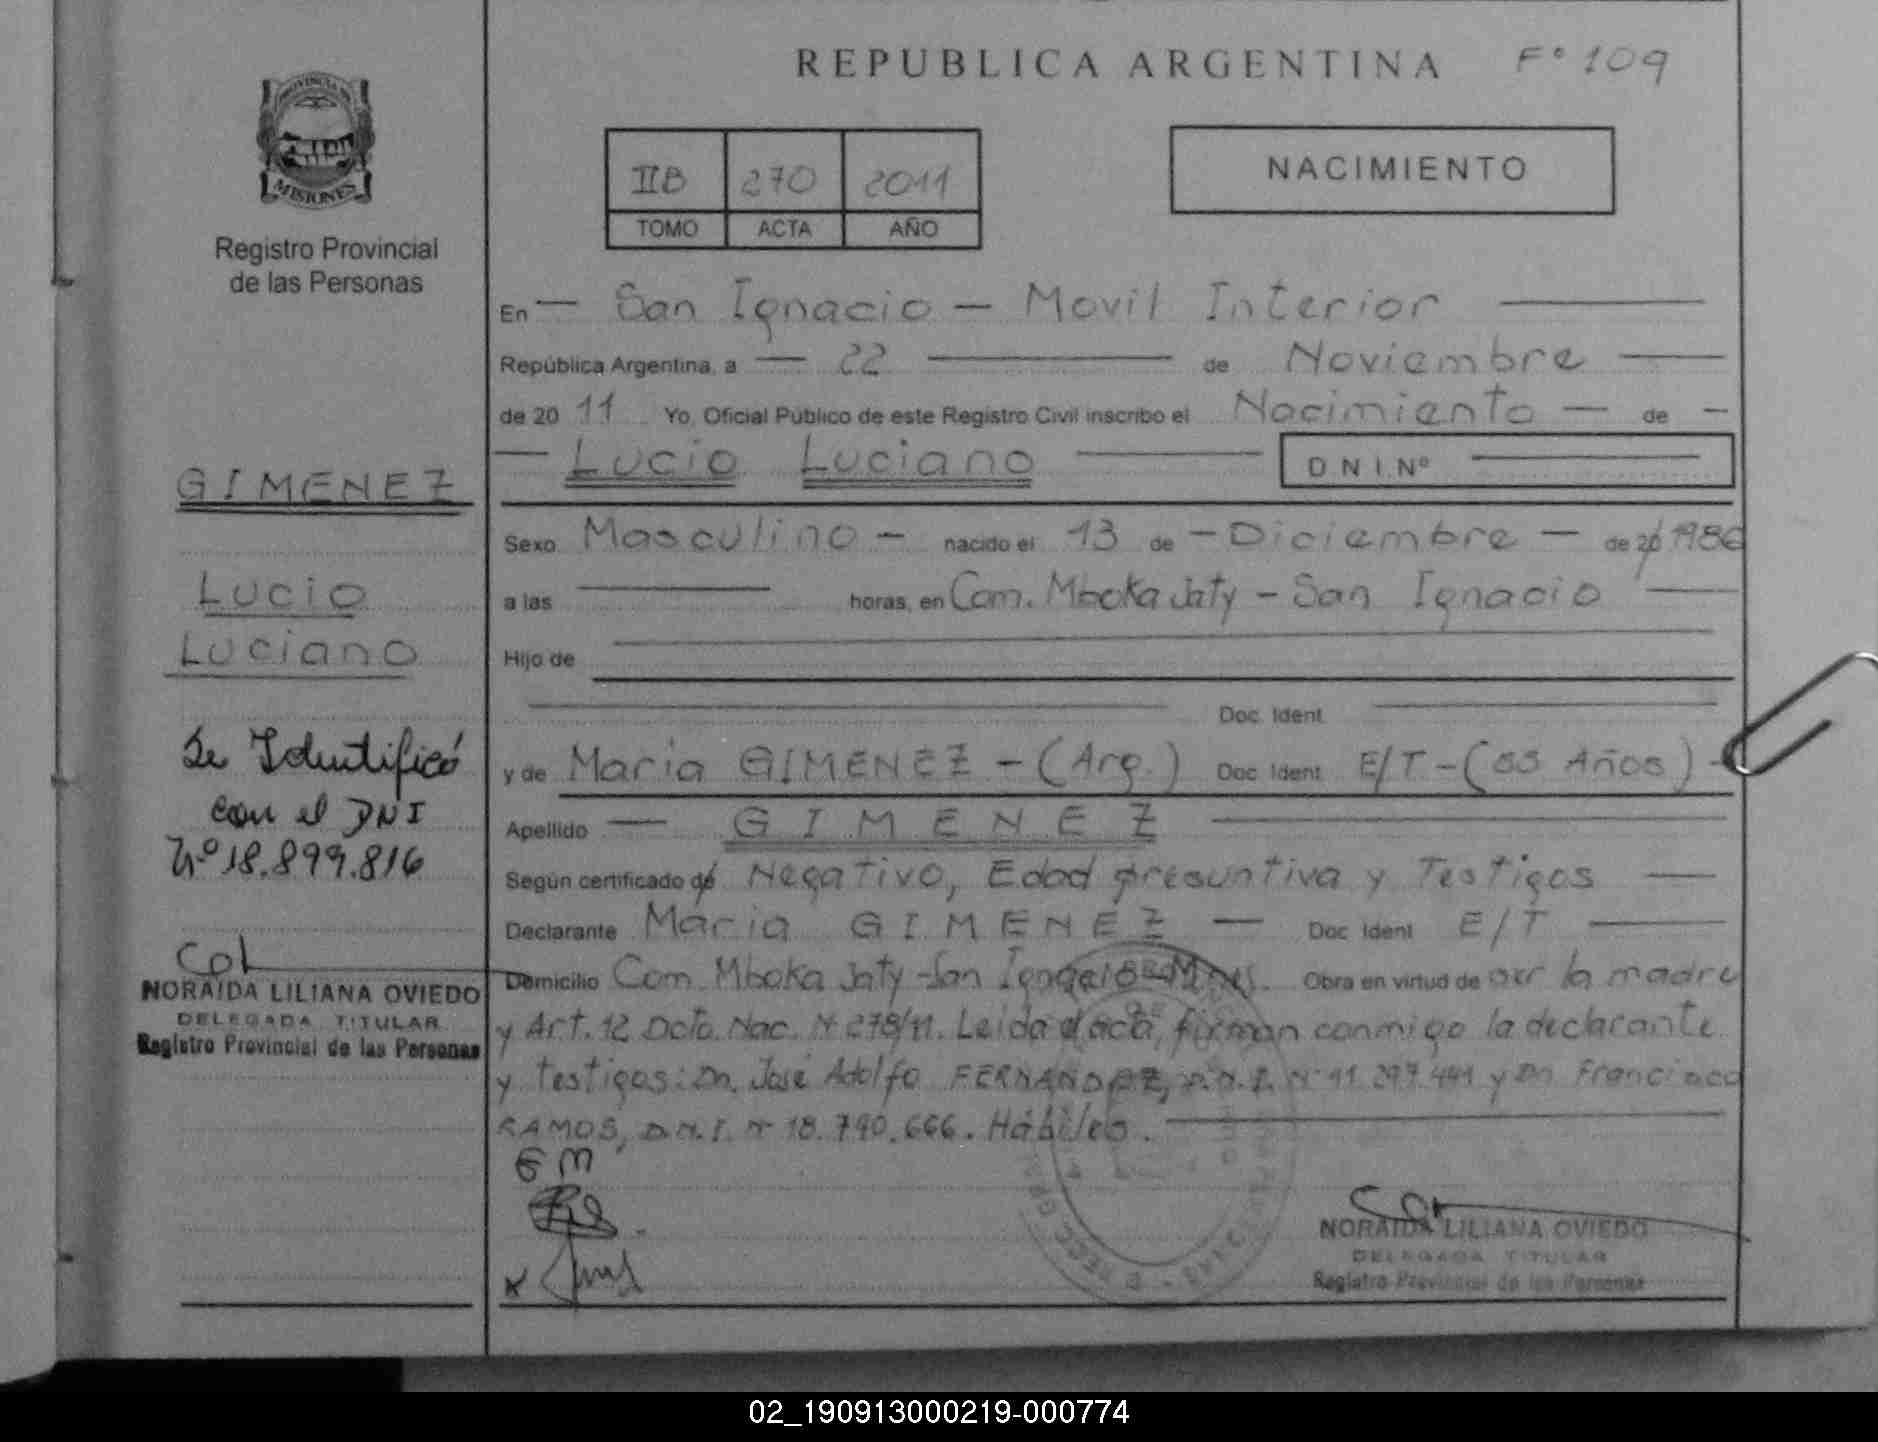 REPUBLICA ARGENTINA Fº 109
PROVINCIA DE
MISIONES
Registro Provincial
de las Personas
IIB 270 2011
TOMO ACTA AÑO
NACIMIENTO
En — San Ignacio — Movil Interior
República Argentina, a — 22 — de Noviembre
de 20 11 Yo, Oficial Público de este Registro Civil inscribo el Nacimiento — de —
— Lucio Luciano — D.N.I.Nº
GIMENEZ
Lucio
Luciano
Se Identificó
con el DNI
Nº 18.899.816
NORAIDA LILIANA OVIEDO
DELEGADA TITULAR
Registro Provincial de las Personas
Sexo Masculino — nacido el 13 de — Diciembre — de 20 1986
a las horas, en Com. Mboka Jaty — San Ignacio
Hijo de
Doc. Ident.
y de Maria GIMENEZ — (Arg.) Doc. Ident. E/T — (55 Años) —
Apellido — GIMENEZ
Según certificado de Negativo, Edad presuntiva y Testigos
Declarante Maria GIMENEZ — Doc. Ident. E/T
Domicilio Com. Mboka Jaty — San Ignacio — Mnes. Obra en virtud de ser la madre
y Art. 12 Dcto. Nac. Nº 278/11. Leida el acta, firman conmigo la declarante
y testigos: Dn. José Adolfo FERNANDEZ, D.N.I. Nº 11.297.441 y Dn Francisco
RAMOS, D.N.I. Nº 18.790.666. Hábiles.
G M
NORAIDA LILIANA OVIEDO
DELEGADA TITULAR
Registro Provincial de las Personas
02_190913000219-000774